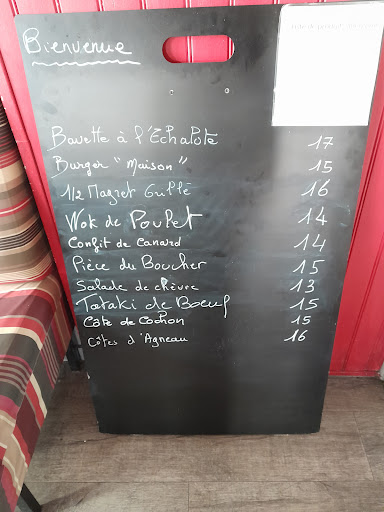 Bienvenue
Bavette à l'Echalote 17
Burger "Maison" 15
1/2 Magret Grillé 16
Wok de Poulet 14
Confit de Canard 14
Pièce du Boucher 15
Salade de chèvre 13
Tataki de Boeuf 15
Côte de Cochon 15
Côtes d'Agneau 16